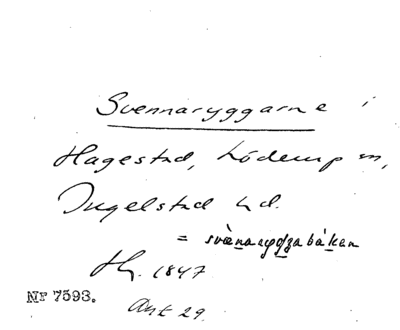 Svennaryggarne i
Hagestad, Löderup sn,
Ingelstad hd.
= svænaryggabákan
Hy. 1847
Nr 7593.
Ant 29